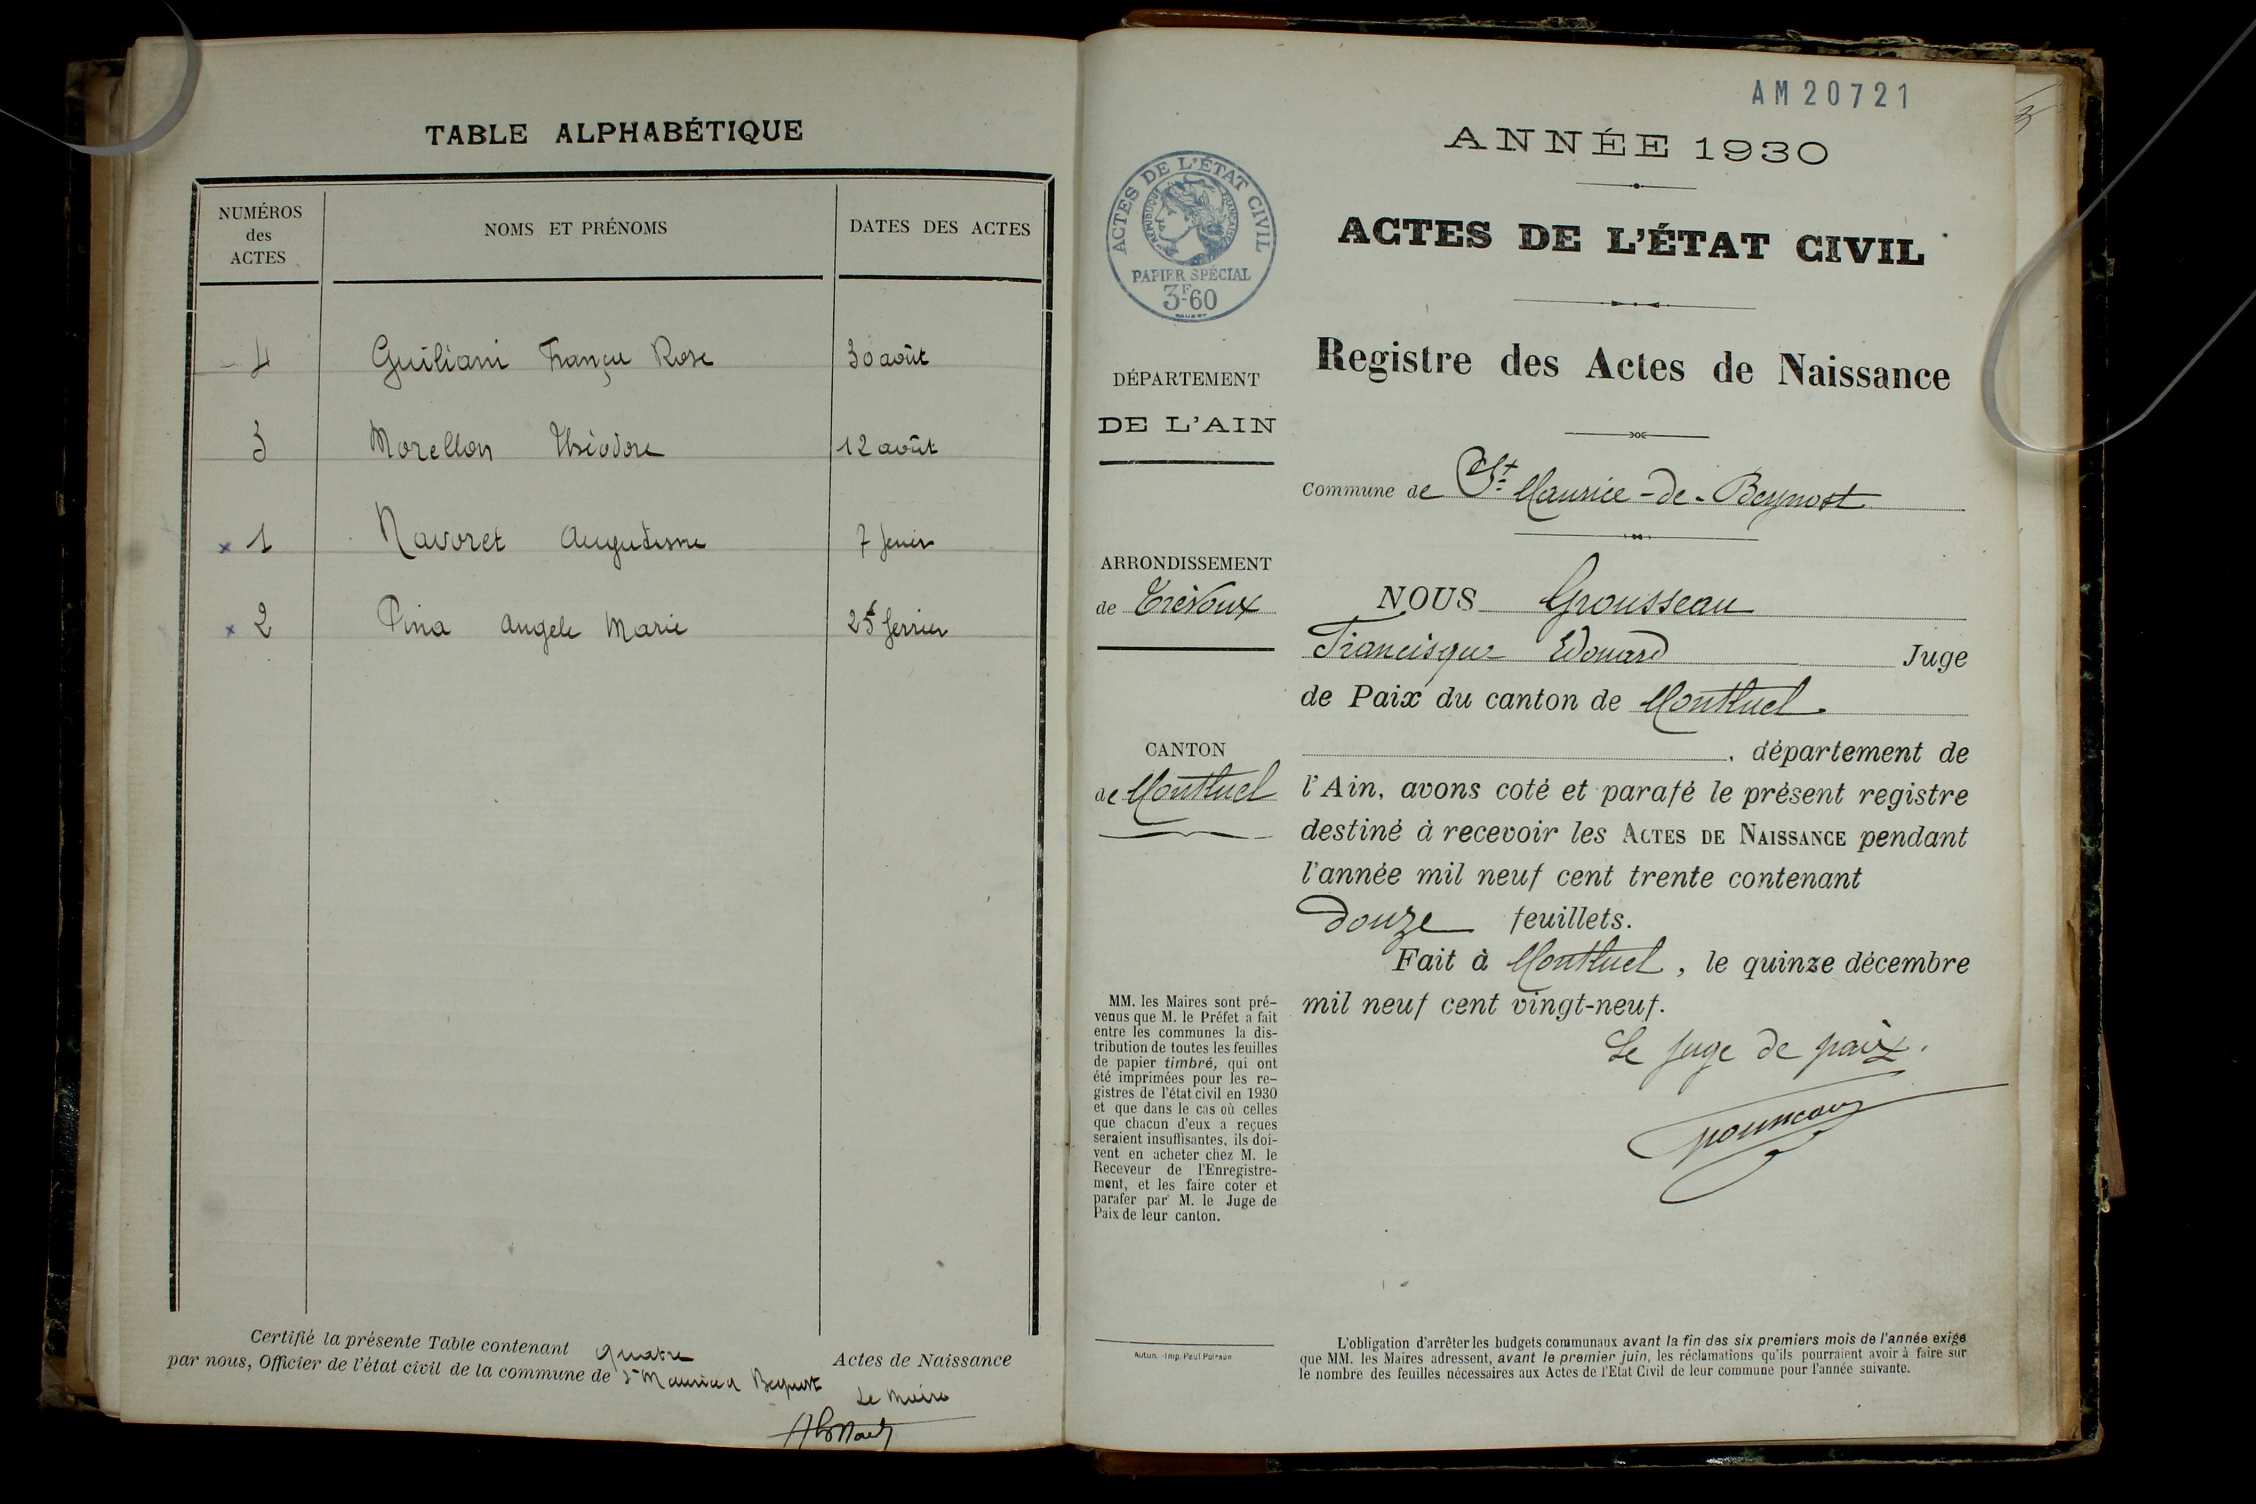 TABLE ALPHABÉTIQUE
NUMÉROS
des
ACTES
NOMS ET PRÉNOMS
DATES DES ACTES
4 Guiliani Françe Rose 30 août
3 Morellon Théodore 12 août
x 1 Navoret Augustine 7 fevier
x 2 Pina Angele Marie 25 ferrier
Certifié la présente Table contenant quatre Actes de Naissance
par nous, Officier de l'état civil de la commune de St Maurice d Beynost
Le Maire
AM20721
ANNÉE 1930
ACTES DE L'ÉTAT CIVIL
RÉPUBLIQUE FRANÇAISE
PAPIER SPÉCIAL
3F.60
ACTES DE L'ÉTAT CIVIL
Registre des Actes de Naissance
Commune de St. Maurice-de-Beynost
DÉPARTEMENT
DE L'AIN
ARRONDISSEMENT
de Trévoux
CANTON
de Montluel
MM. les Maires sont pré-
venus que M. le Préfet a fait
entre les communes la dis-
tribution de toutes les feuilles
de papier timbré, qui ont
été imprimées pour les re-
gistres de l'état civil en 1930
et que dans le cas où celles
que chacun d'eux a reçues
seraient insuffisantes, ils doi-
vent en acheter chez M. le
Receveur de l'Enregistre-
ment, et les faire coter et
parafer par M. le Juge de
Paix de leur canton.
Autun. - Imp. Paul Poirson
NOUS Grousseau
Francisque Edouard Juge
de Paix du canton de Montluel.
, département de
l'Ain, avons coté et parafé le présent registre
destiné à recevoir les ACTES DE NAISSANCE pendant
l'année mil neuf cent trente contenant
douze feuillets.
Fait à Montluel, le quinze décembre
mil neuf cent vingt-neuf.
Le juge de paix.
L'obligation d'arrêter les budgets communaux avant la fin des six premiers mois de l'année exige
que MM. les Maires adressent, avant le premier juin, les réclamations qu'ils pourraient avoir à faire sur
le nombre des feuilles nécessaires aux Actes de l'Etat Civil de leur commune pour l'année suivante.